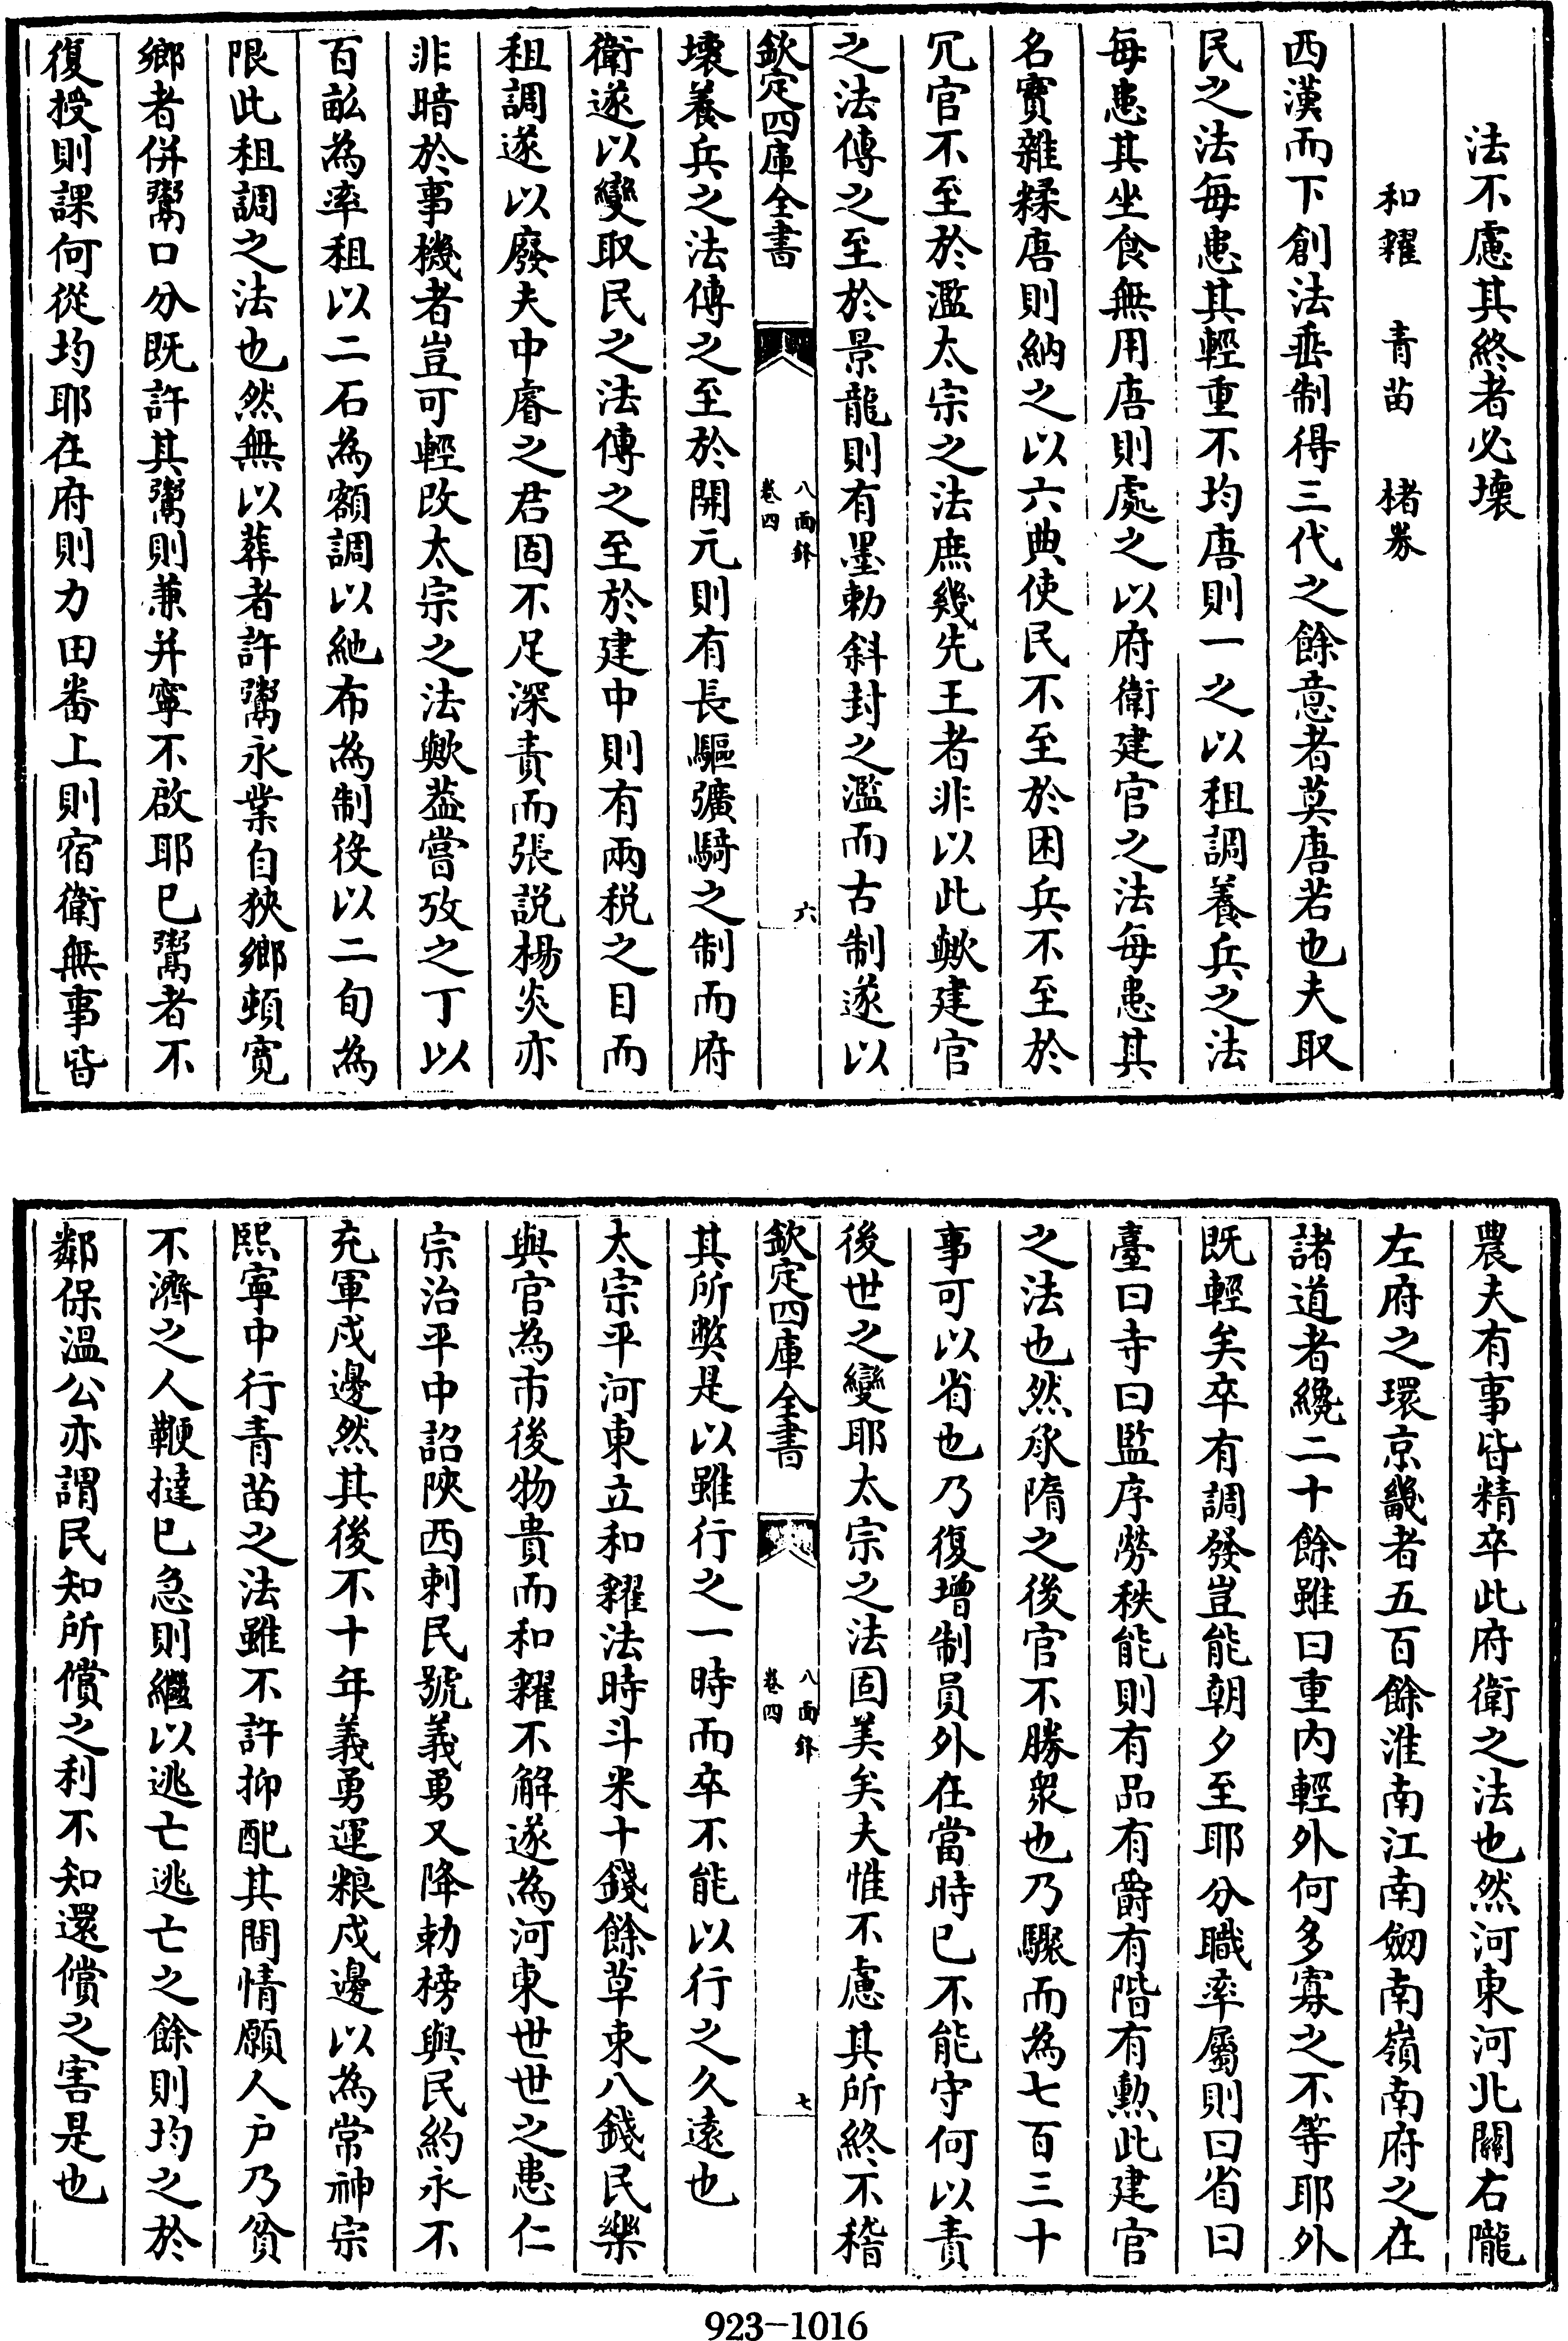 法不慮其終者必壞
和糴　青苗　楮券
西漢而下創法垂制得三代之餘意者莫唐若也夫取
民之法每患其輕重不均唐則一之以租調養兵之法
每患其坐食無用唐則處之以府衛建官之法每患其
名實雜糅唐則納之以六典使民不至於困兵不至於
冗官不至於濫太宗之法庶幾先王者非以此歟建官
之法傳之至於景龍則有墨勅斜封之濫而古制遂以
欽定四庫全書
八面鋒
卷四
六
壞養兵之法傳之至於開元則有長驅彍騎之制而府
衛遂以變取民之法傳之至於建中則有兩稅之目而
租調遂以廢夫中睿之君固不足深責而張說楊炎亦
非暗於事機者豈可輕改太宗之法歟葢嘗攷之丁以
百畝為率租以二石為額調以絁布為制役以二旬為
限此租調之法也然無以葬者許鬻永業自狹鄉頓寛
鄉者併鬻口分既許其鬻則兼并寧不啟耶已鬻者不
復授則課何從均耶在府則力田番上則宿衛無事皆
農夫有事皆精卒此府衛之法也然河東河北關右隴
左府之環京畿者五百餘淮南江南劒南嶺南府之在
諸道者纔二十餘雖曰重內輕外何多寡之不等耶外
既輕矣卒有調發豈能朝夕至耶分職率屬則曰省曰
臺曰寺曰監序勞秩能則有品有爵有階有勲此建官
之法也然承隋之後官不勝衆也乃驟而為七百三十
事可以省也乃復增制員外在當時已不能守何以責
後世之變耶太宗之法固美矣夫惟不慮其所終不稽
欽定四庫全書
八面鋒
卷四
七
其所弊是以雖行之一時而卒不能以行之久遠也
太宗平河東立和糴法時斗米十錢餘草束八錢民樂
與官為市後物貴而和糴不解遂為河東世世之患仁
宗治平中詔陝西刺民號義勇又降勅榜與民約永不
充軍戍邊然其後不十年義勇運粮戍邊以為常神宗
熙寧中行青苗之法雖不許抑配其間情願人户乃貧
不濟之人鞭撻已急則繼以逃亡逃亡之餘則均之於
鄰保溫公亦謂民知所償之利不知還償之害是也
923-1016